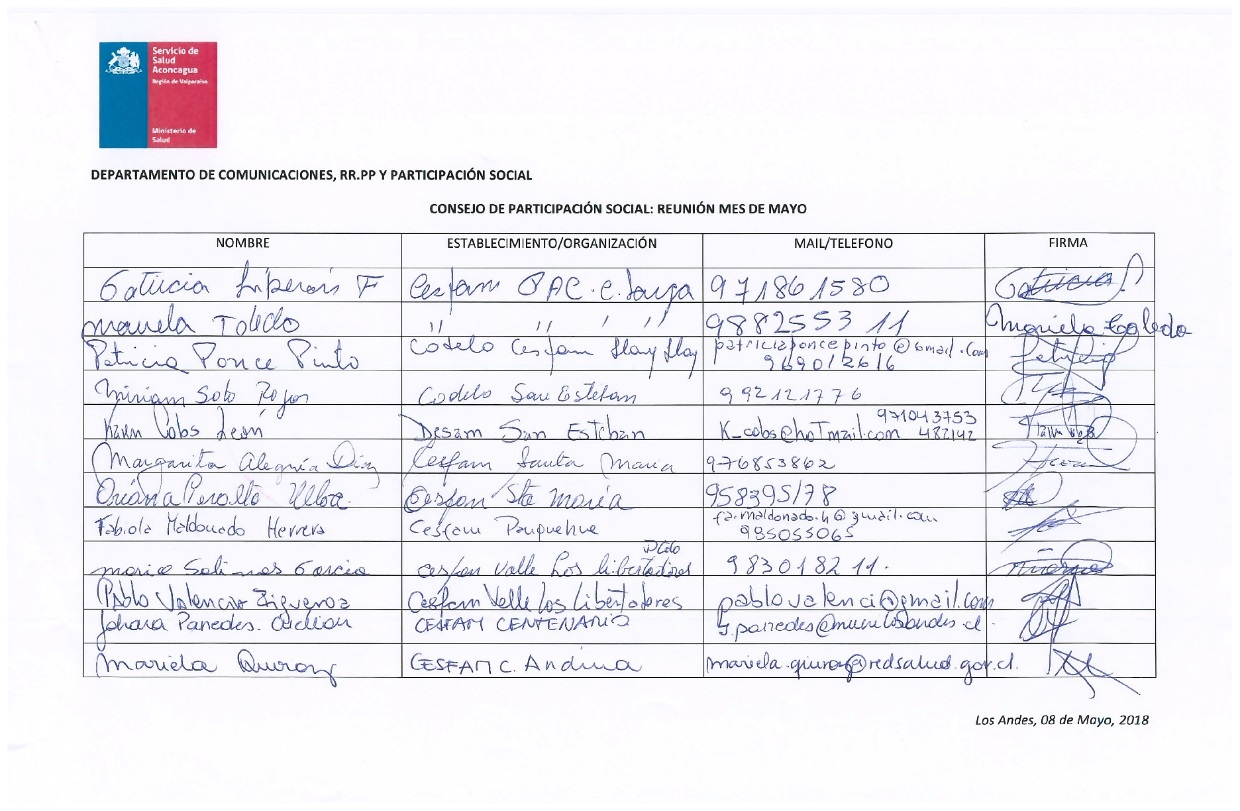 Servicio de
Salud
Aconcagua
Región de Valparaíso
Ministerio de
Salud
DEPARTAMENTO DE COMUNICACIONES, RR.PP Y PARTICIPACIÓN SOCIAL
CONSEJO DE PARTICIPACIÓN SOCIAL: REUNIÓN MES DE MAYO
NOMBRE ESTABLECIMIENTO/ORGANIZACIÓN MAIL/TELEFONO FIRMA
F Cesfam 971861580
Manuela Toledo 11 11 1 11 988255311 Toledo
Patricia Ponce Pinto Codelo Cesfam Llay Llay patriciaponcepinto@gmail.com
969012616
Miriam Soto Rojas Codelo San Esteban 992121776
971043753
Karen Cobs León Desam San Esteban K_cobs@hotmail.com 482142
Margarita Alegría Diaz Cesfam Santa Maria 976853862
Oriana Peralta Ulloa Cesfam Sta Maria 958395178
Fabiola Maldonado Herrera Cesfam Panquehue fa.maldonado.h@gmail.com
985055065
Mario Salinas Garcia Cesfam Valle Los Libertadores 983018211.
Pablo Valencia Cesfam Valle Los Libertadores pablovalenci@gmail.com
Johara Paredes CESFAM CENTENARIO
Mariela Quiroz CESFAM C. Andina mariela.quiroz@redsalud.gov.cl
Los Andes, 08 de Mayo, 2018